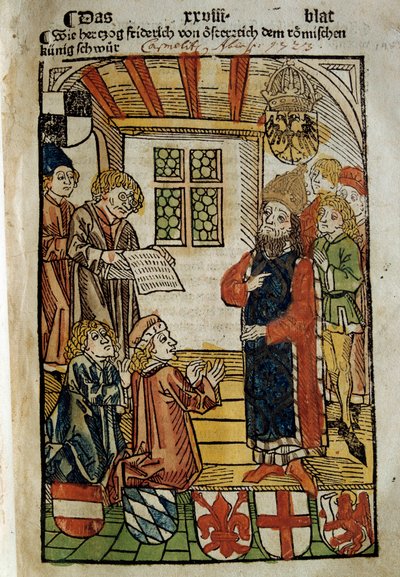 Das xxviii blat
Wie hertzog friderich von österreich dem römischen
künig schwür
Carmelit